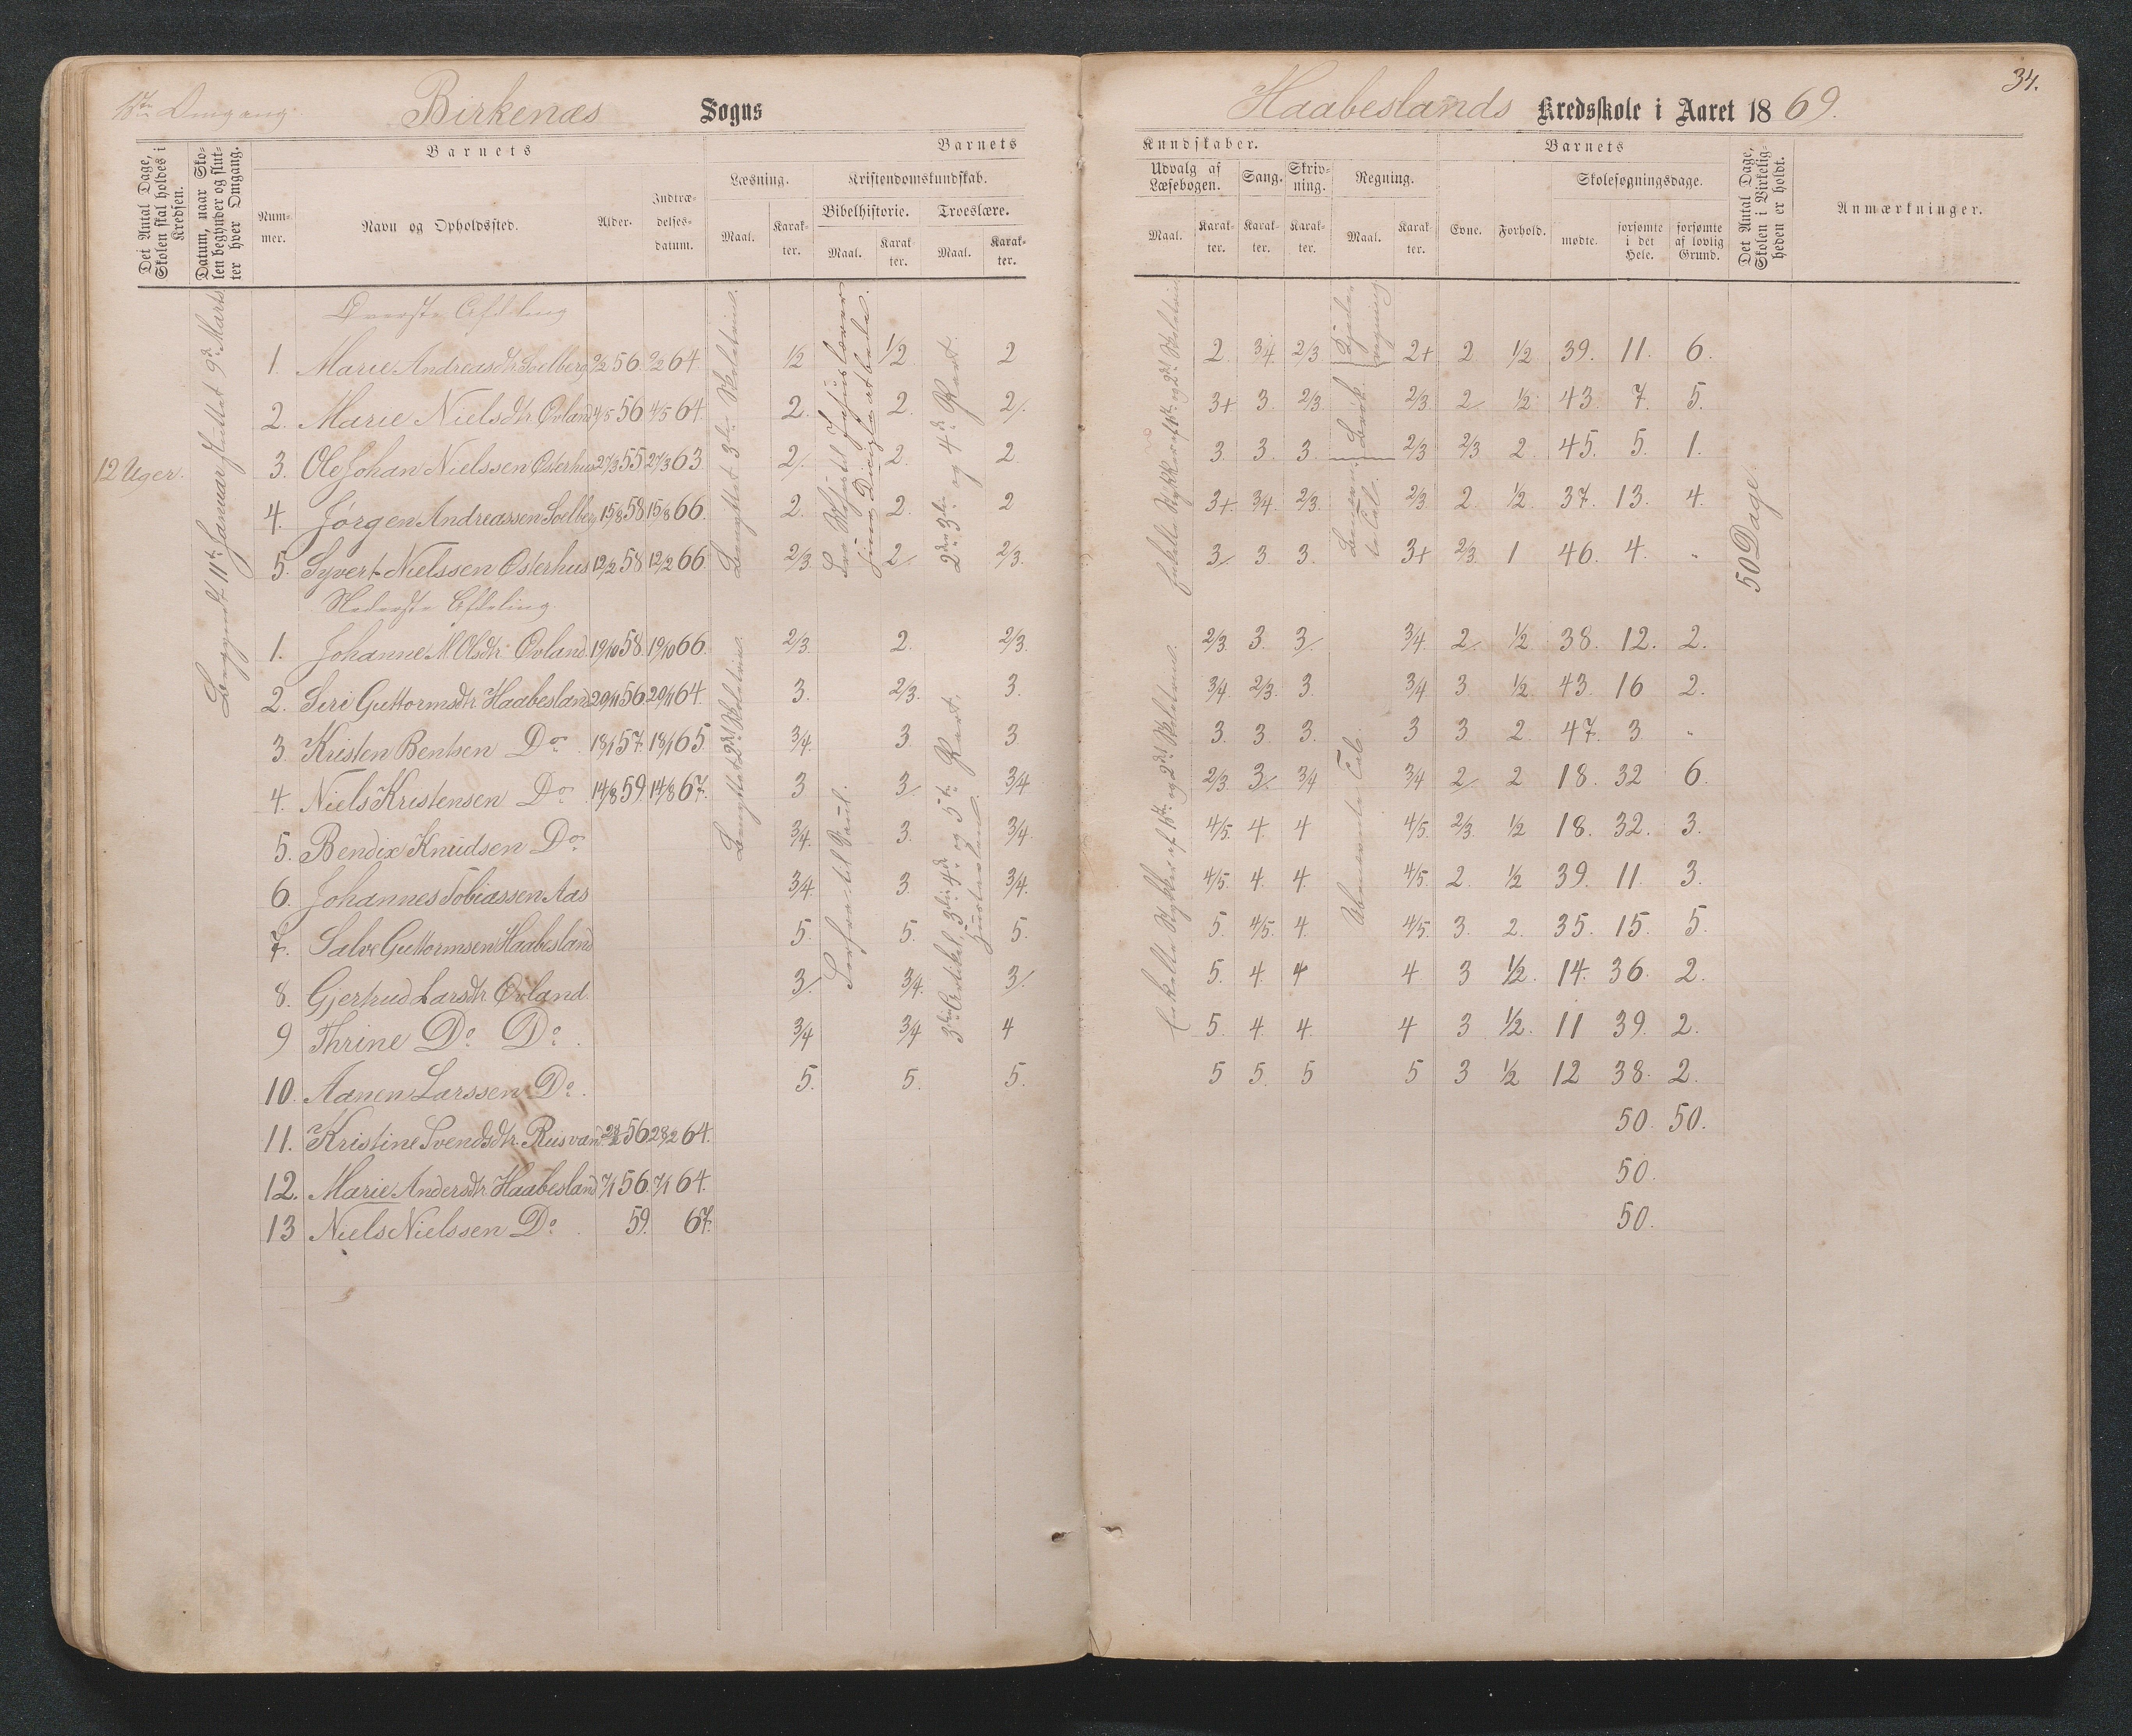 1ste Omgang.
Birkenæs Sogns
Det Antal Dage, Skolen skal holdes i Kredsen.
Datum, naar Skolen begynder og slutter hver Omgang.
Barnets
Barnets
Nummer.
Navn og Opholdssted.
Alder.
Indtrædelsesdatum.
Læsning.
Kristendomskundskab.
Maal.
Karakter.
Bibelhistorie.
Troeslære.
Maal.
Karakter.
Maal.
Karakter.
12 Uger.
Begyndt 11te Januar sluttet 9de Marts
Øverste Afdeling
1. Marie Andreasdtr. Soelberg 2/2 56. 2/2 64. 1/2 1/2 2
2. Marie Nielsdtr. Ovland 4/5 56 4/5 64. 2. 2. 2/.
3. Ole Johan Nielssen Osterhus 27/3 55 27/3 63 2/. 2. 2.
4. Jørgen Andreassen Soelberg 15/8 58 15/8 66. 2. 2. 2
5. Syvert Nielssen Osterhus 12/2 58 12/2 66. 2/3. 2/. 2/3.
Nederste Afdeling
1. Johanne M. Olsdtr. Ovland. 19/10 58. 19/10 66. 2/3. 2. 2/3.
2. Siri Guttormsdtr. Haabesland 20/11 56. 20/11 64. 3. 2/3. 3.
3. Kristen Bentsen Do. 18/1 57. 18/1 65. 3/4. 3. 3
4. Niels Kristensen Do. 14/8 59. 14/8 67. 3 3/. 3/4
5. Bendix Knudsen Do. 3/4. 3. 3/4.
6. Johannes Tobiassen Aas 3/4. 3. 3/4.
7. Salve Guttormsen Haabesland 5. 5. 5.
8. Gjertrud Larsdtr. Ovland. 3/. 3/4. 3/.
9 Thrine Do. Do. 3/4 3/4 4
10. Aanen Larssen Do. 5. 5. 5.
11. Kristine Svendsdtr. Riisvand 28/2 56 28/2 64.
12. Marie Andersdtr. Haabesland 7/1 56. 7/1 64.
13 Niels Nielssen Do. 59. 67.
Benyttet 3die Skoletrin.
Benyttet 2det Skoletrin.
2den 3die og 4de Part.
3die Artikel, 3die 4de og 5te Part.
34.
Haabeslands Kredsskole i Aaret 1869.
Kundskaber.
Barnets
Udvalg af Læsebogen.
Sang.
Skrivning.
Regning.
Skolesøgningsdage.
Det Antal Dage, Skolen i Virkeligheden er holdt.
Anmærkninger.
Maal.
Karakter.
Karakter.
Karakter.
Maal.
Karakter.
Evne.
Forhold.
mødte.
forsømte i det Hele.
forsømte af lovlig Grund.
2. 3/4 2/3 2+ 2 1/2 39. 11. 6.
3+ 3. 2/3. 2/3. 2/ 1/2 43. 7. 5.
3 3. 3. 2/3 2/3 2. 45. 5. 1.
3+ 3/4. 2/3. 2/3. 2. 1/2. 37. 13. 4.
3/. 3 3. 3+ 2/3. 1 46. 4. "
2/3. 3. 3/. 3/4. 2/. 1/2 38. 12. 2.
3/4. 2/3. 3. 3/4 3. 1/2 43. 16 2.
3. 3. 3. 3 3. 2. 47. 3. "
2/3. 3/. 3/4 3/4 2/. 2 18. 32 6.
4/5. 4. 4 4/5. 2/3. 1/2 18. 32. 3.
4/5. 4. 4. 4/5. 2. 1/2 39. 11. 3.
5. 4/5. 4. 4/5. 3. 2. 35. 15. 5.
5. 4. 4 4 3 1/2. 14. 36. 2.
5. 4. 4. 4 3 1/2. 11 39. 2.
5 5. 5 5 3 1/2 12 38. 2.
50. 50.
50.
50.
Enkelte Stykker af 1ste og 2det Skoletrin.
Enkelte Stykker af 1ste og 2det Skoletrin.
Brøk.
Ubenevnte Tal.
50 Dage.